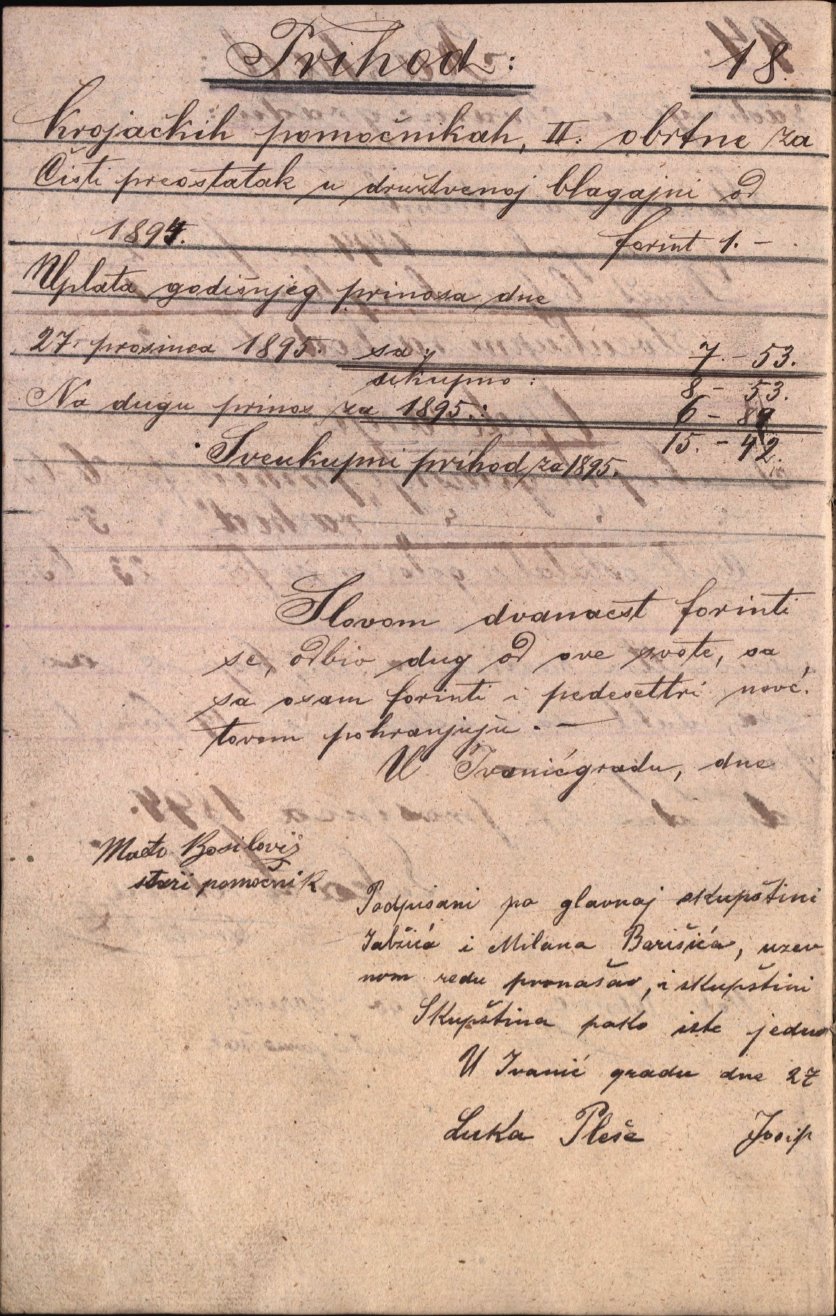 Prihod: 18
krojačkih pomoćnikah, II. obrtne za
Čisti preostatak u družtvenoj blagajni od
1894. forint 1. –
Uplata godišnjeg prinosa dne
27. prosinca 1895. sa 7. – 53.
sukupno: 8 – 53.
Na dugu prinos za 1895.: 6 – 89
Sveukupni prihod za 1895. 15. – 42.
Slovom dvanaest forinti
se, odbiv dug od ove svote, sa
sa osam forinti i pedesettri novč.
tovom pohranjuju. —
U Ivanićgradu, dne
Mato
stari pomoćnik
Podpisani po glavnoj skupštini
i Milana Barišića, uzev
nom redu pronašav, i skupštini
Skupština pako iste jedno
U Ivanić gradu dne 27
Luka Pleše Josip